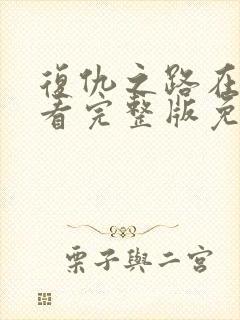 復仇之路在
看完整版免
栗子與二宮